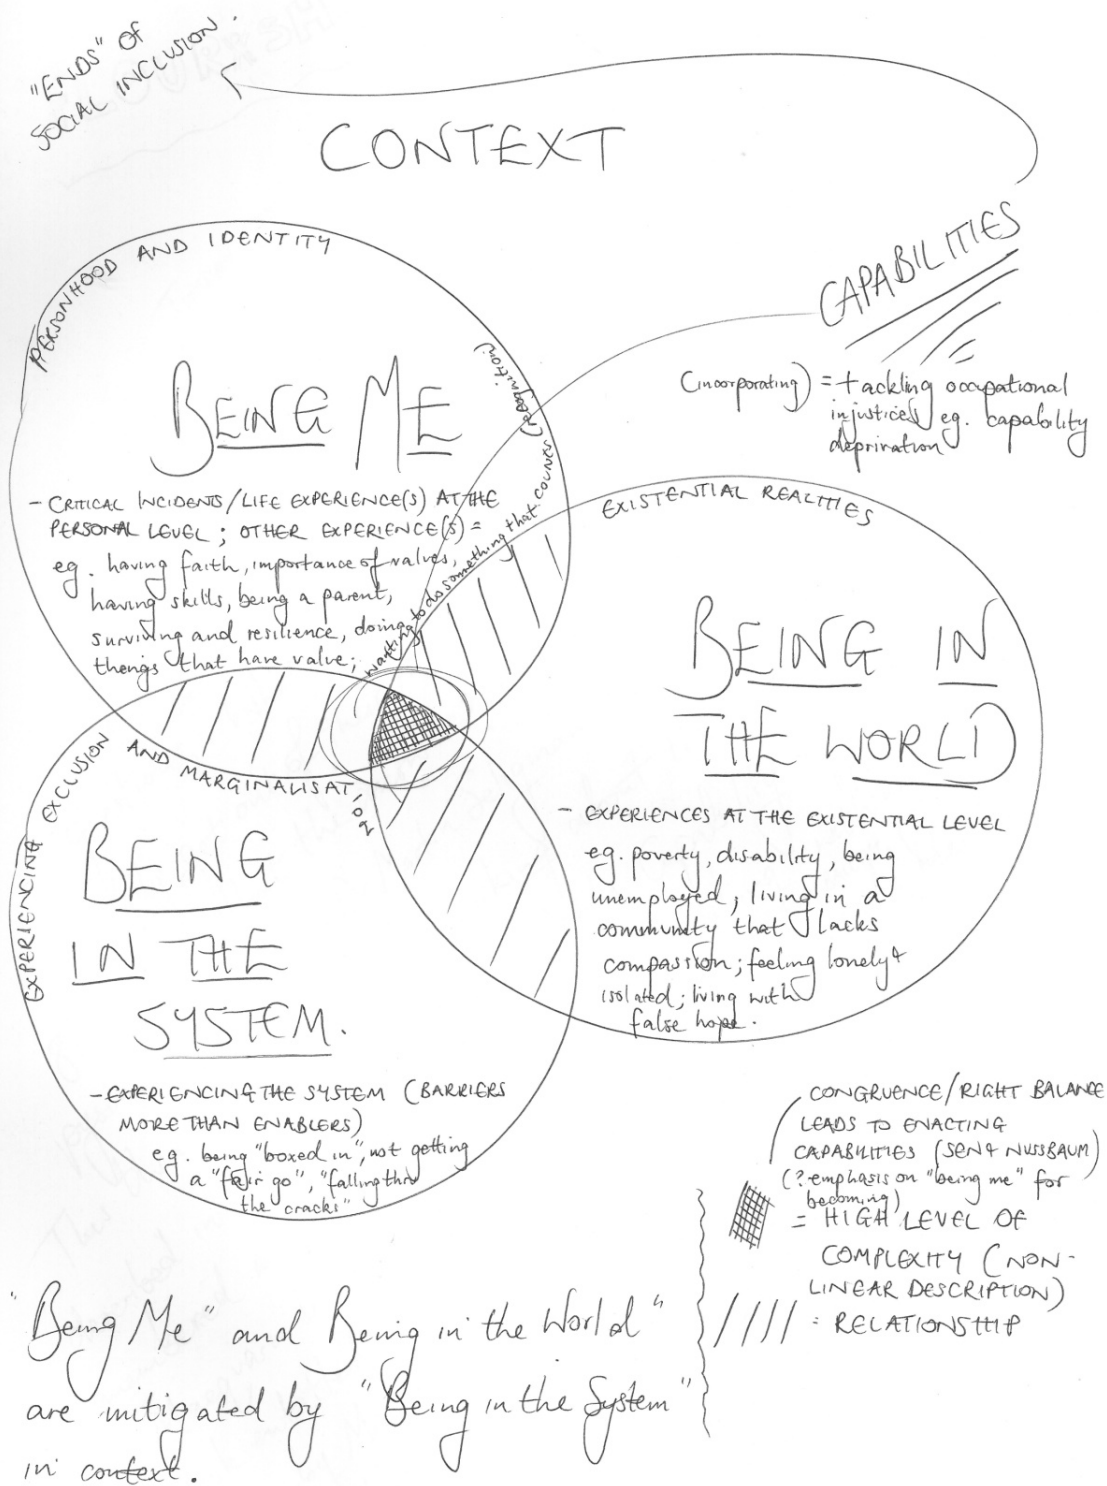 "ENDS" OF
SOCIAL INCLUSION.
CONTEXT
CAPABILITIES
(incorporating) = tackling occupational
injustices eg. capability
deprivation
PERSONHOOD AND IDENTITY
BEING ME
- CRITICAL INCIDENTS/LIFE EXPERIENCE(S) AT THE
PERSONAL LEVEL; OTHER EXPERIENCE(S) =
eg. having faith, importance of values,
having skills, being a parent,
surviving and resilience, doing
things that have value;
wanting to do something that counts (recognition)
EXISTENTIAL REALITIES
BEING IN
THE WORLD
- EXPERIENCES AT THE EXISTENTIAL LEVEL
eg. poverty, disability, being
unemployed, living in a
community that lacks
compassion; feeling lonely &
isolated; living with
false hope.
EXPERIENCING EXCLUSION AND MARGINALISATION
BEING
IN THE
SYSTEM.
- EXPERIENCING THE SYSTEM (BARRIERS
MORE THAN ENABLERS)
eg. being "boxed in", not getting
a "fair go", "falling thru
the cracks"
CONGRUENCE/RIGHT BALANCE
LEADS TO ENACTING
CAPABILITIES (SEN & NUSSBAUM)
(? emphasis on "being me" for
becoming)
= HIGH LEVEL OF
COMPLEXITY (NON-
LINEAR DESCRIPTION)
= RELATIONSHIP
"Being Me" and Being in the World"
are mitigated by "Being in the System"
in context.